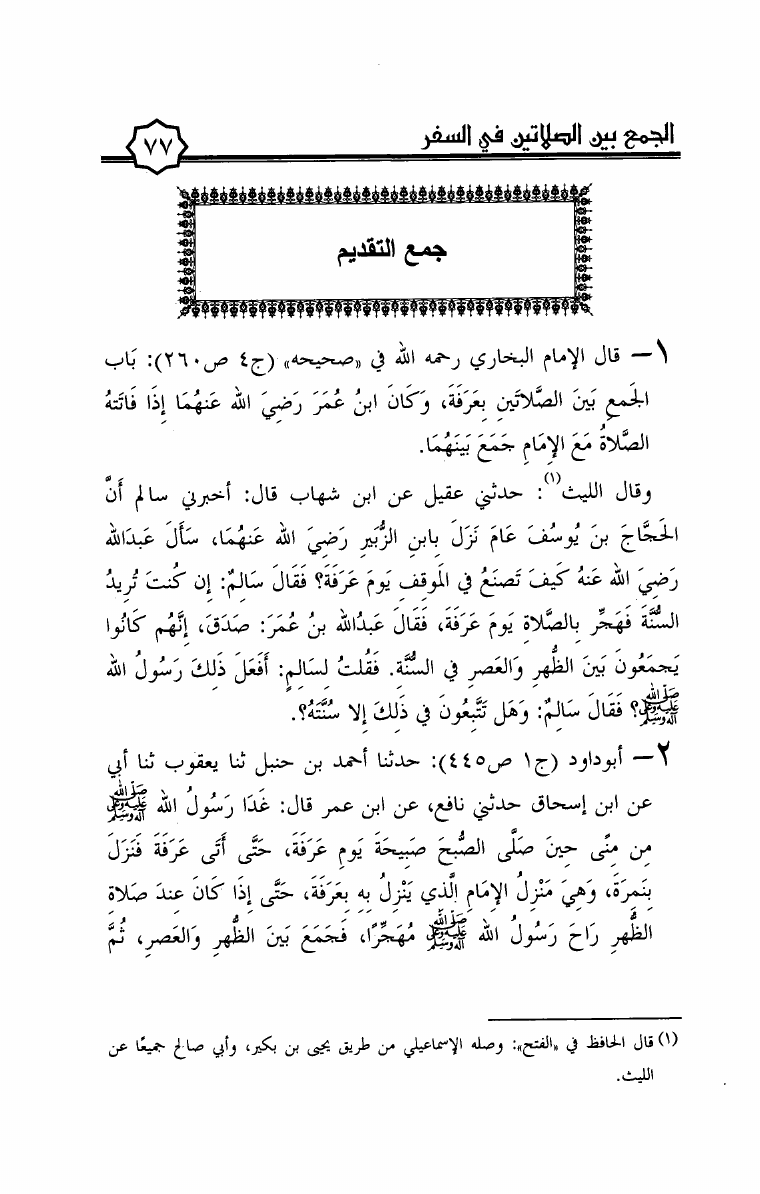 الجمع بين الصلاتين في السفر
٧٧
جمع التقديم
١— قال الإمام البخاري رحمه الله في «صحيحه» (ج٤ ص٢٦٠): بَاب
الجَمعِ بَينَ الصَّلاتَينِ بِعَرَفَةَ، وَكَانَ ابنُ عُمَرَ رَضِيَ الله عَنهُمَا إِذَا فَاتَتهُ
الصَّلاةُ مَعَ الإِمَامِ جَمَعَ بَينَهُمَا.
وقال الليث(١): حدثني عقيل عن ابن شهاب قال: أخبرني سالم أنَّ
الحَجَّاجَ بنَ يُوسُفَ عَامَ نَزَلَ بِابنِ الزُّبَيرِ رَضِيَ الله عَنهُمَا، سَأَلَ عَبدَالله
رَضِيَ الله عَنهُ كَيفَ تَصنَعُ في المَوقفِ يَومَ عَرَفَةَ؟ فَقَالَ سَالِمٌ: إِن كُنتَ تُرِيدُ
السُّنَّةَ فَهَجِّر بِالصَّلاةِ يَومَ عَرَفَةَ، فَقَالَ عَبدُالله بنُ عُمَرَ: صَدَقَ، إِنَّهُم كَانُوا
يَجمَعُونَ بَينَ الظُّهرِ وَالعَصرِ في السُّنَّةِ. فَقُلتُ لِسَالِمٍ: أَفَعَلَ ذَلِكَ رَسُولُ الله
صلى الله عليه وآله وسلم؟ فَقَالَ سَالِمٌ: وَهَل تَتَّبِعُونَ في ذَلِكَ إِلا سُنَّتَهُ؟.
٢— أبوداود (ج١ ص٤٤٥): حدثنا أحمد بن حنبل ثنا يعقوب ثنا أبي
عن ابن إسحاق حدثني نافع، عن ابن عمر قال: غَدَا رَسُولُ الله صلى الله عليه وآله وسلم
مِن مِنًى حِينَ صَلَّى الصُّبحَ صَبِيحَةَ يَومِ عَرَفَةَ، حَتَّى أَتَى عَرَفَةَ فَنَزَلَ
بِنَمِرَةَ، وَهِيَ مَنْزِلُ الإِمَامِ الَّذي يَنْزِلُ بِهِ بِعَرَفَةَ، حَتَّى إِذَا كَانَ عِندَ صَلاةِ
الظُّهرِ رَاحَ رَسُولُ الله صلى الله عليه وآله وسلم مُهَجِّرًا، فَجَمَعَ بَينَ الظُّهرِ وَالعَصرِ، ثُمَّ
(١) قال الحافظ في «الفتح»: وصله الإسماعيلي من طريق يحيى بن بكير، وأبي صالح جميعًا عن
الليث.